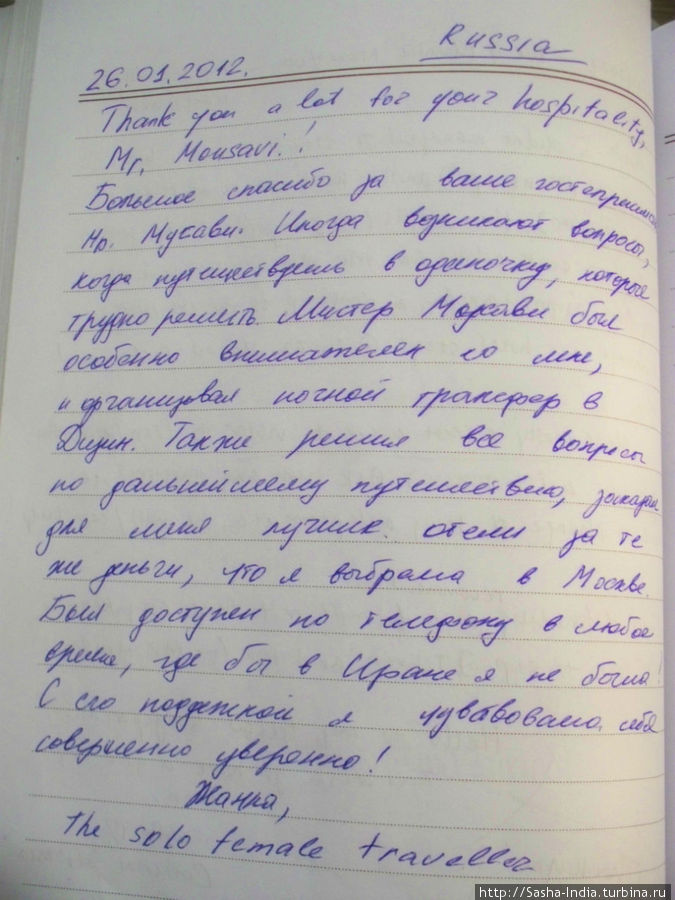 Russia
26.01.2012.
Thank you a lot for your hospitality,
Mr. Mousavi!
Большое спасибо за ваше гостеприимство
Мр. Мусави. Иногда возникают вопросы,
когда путешествуешь в одиночку, которые
трудно решить. Мистер Мусави был
особенно внимателен ко мне,
и организовал ночной трансфер в
Дизин. Также решил все вопросы
по дальнейшему путешествию, заказал
для меня лучшие отели за те
же деньги, что я выбрала в Москве.
Был доступен по телефону в любое
время, где бы в Иране я не была!
С его поддежкой я чувствовала себя
совершенно уверенно!
Жанна,
The solo female traveller
http://Sasha-India.turbina.ru/